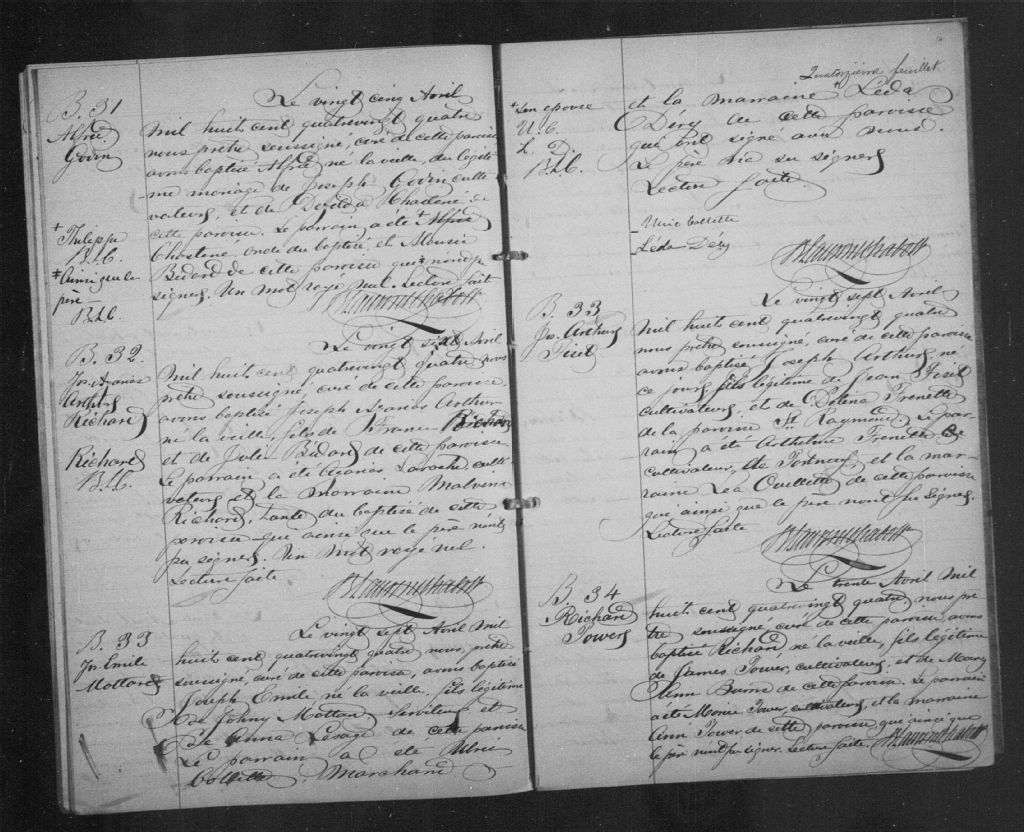 B. 31
Alfred
Godin
Le vingt cinq Avril
mil huit cent quatrevingt quatre
nous prêtre soussigné, curé de cette paroisse
avons baptisé Alfred né la veille, du légiti-
me mariage de Joseph Godin culti
vateur, et de
cette paroisse. Le parrain a été + Alfred
Chastené, oncle du baptisé et
Bedard de cette paroisse qui * n'ont pu
signer. Un mot rayé nul. Lecture fait
+ Philippe
B.L.C.
* ainsi que le
père —
B.L.C.
B. 32.
Jos. Ananias
Arthur
Richard
Le vingt sept Avril
mil huit cent quatrevingt quatre nous
prêtre soussigné, curé de cette paroisse,
avons baptisé Joseph Ananias Arthur
né la veille, fils de Richard
et de Julie Bédard de cette paroisse
Le parrain a été Ananias Laroche, culti-
vateur et la marraine Malvina
Richard, tante du baptisé de cette
paroisse qui ainsi que le père n'ont
pu signer. Un mot rayé nul.
Lecture faite
Richard
B.L.C.
B. 33
Js. Emile
Mottard
Le vingt sept Avril mil
huit cent quatrevingt quatre nous, prêtre
soussigné, curé de cette paroisse, avons baptisé
Joseph Emile né la veille. fils légitime
de Johny Mottard serviteur et
de Anna Lesage de cette paroisse
Le parrain a été Ulric
Collette, Marchand
Quatorzième feuillet
* son épouse
U. C.
L. D.
B.L.C.
et la marraine + Léda
Déry de cette paroisse
qui ont signé avec nous.
Le père n'a su signer
Lecture faite.
Ulric Collette
Léda Déry
B. 33
Jos. Arthur
Le vingt sept Avril
mil huit cent quatrevingt quatre
nous prêtre soussigné, curé de cette paroisse
avons baptisé Joseph Arthur né
ce jour, fils légitime de Jean
cultivateur, et de Frenette
de la paroisse St Raymond Le par-
rain a été Frenette
cultivateur, de Portneuf, et la mar-
raine Léa Ouellette de cette paroisse
qui ainsi que le père n'ont pu signer
Lecture faite
B. 34
Richard
Power
Le trente Avril mil
huit cent quatrevingt quatre nous prê
tre soussigné, curé de cette paroisse, avons
baptisé Richard né la veille, fils légitime
de James Power, cultivateur, et de Mary
Ann de cette paroisse. Le parrain
a été Power, cultivateur, et la marraine
Ann Power de cette paroisse qui ainsi que
le père n'ont pu signer. Lecture faite.